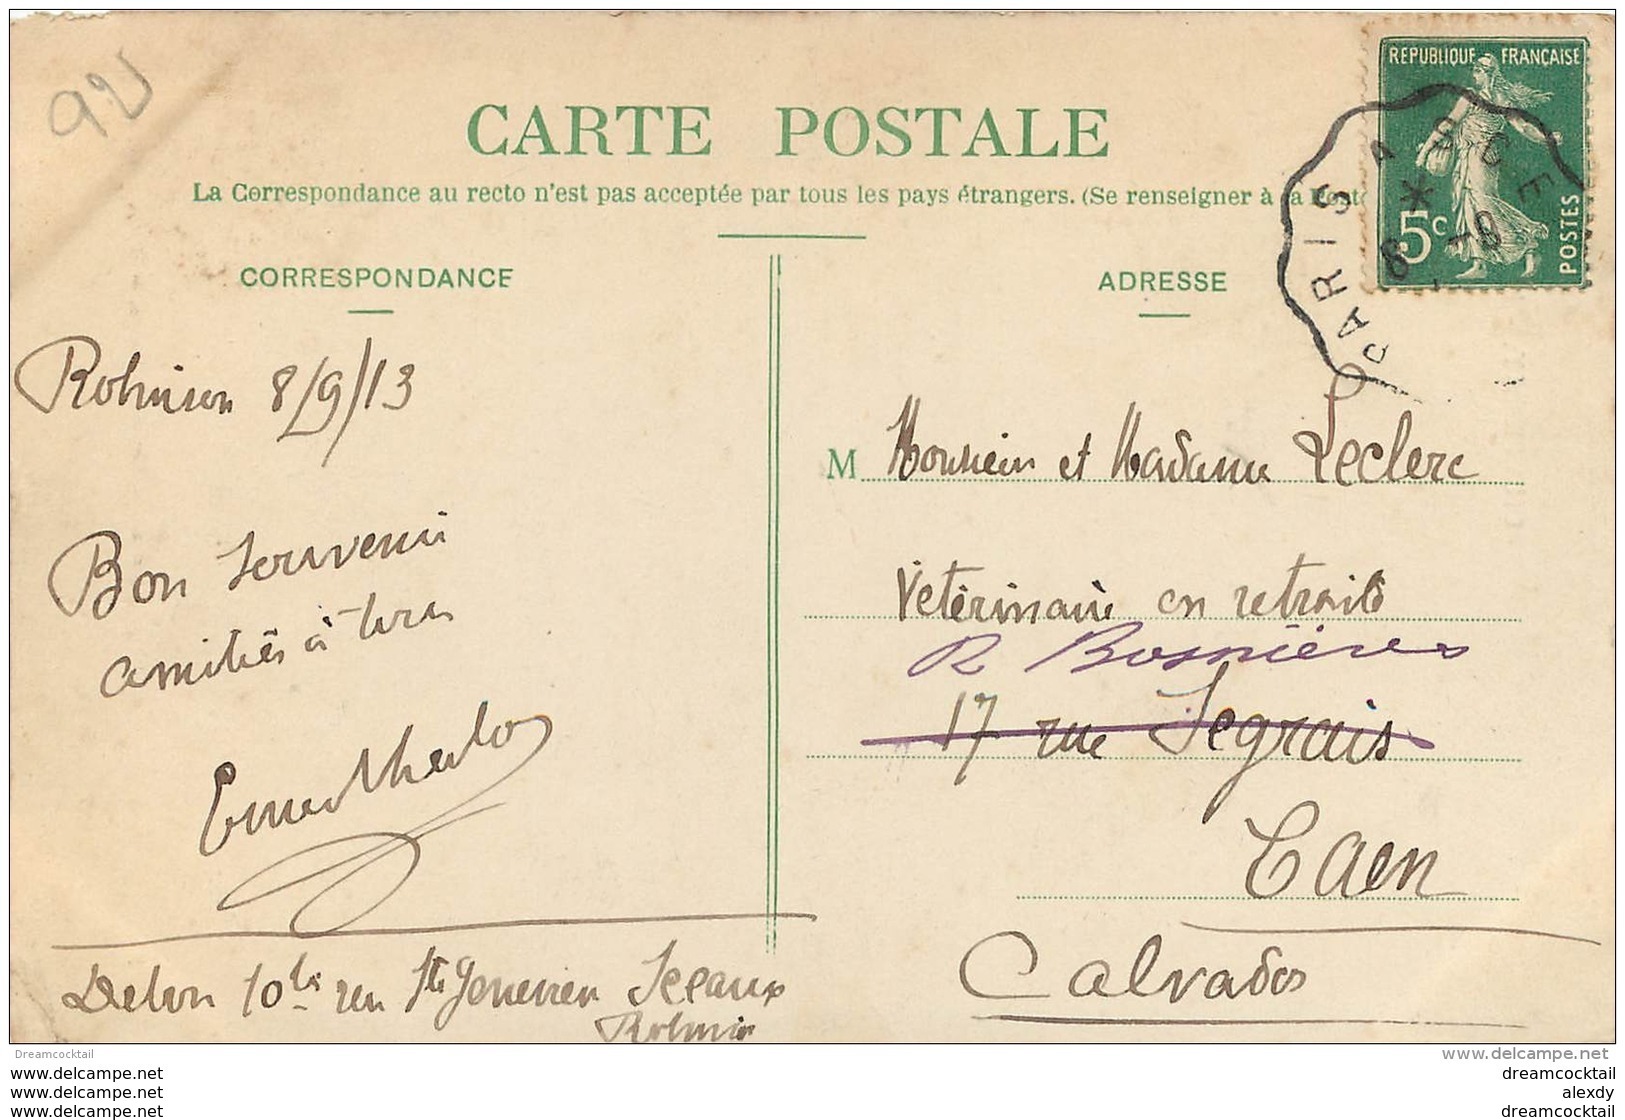 92
REPUBLIQUE FRANÇAISE
5c
POSTES
PARIS A SCE
8 - 9
CARTE POSTALE
La Correspondance au recto n'est pas acceptée par tous les pays étrangers. (Se renseigner à la Poste
CORRESPONDANCE
ADRESSE
Robinson 8/9/13
Bon souvenir
amitiés à tous
Ernest
10 bis rue Ste Geneviève Sceaux
Robinson
M Monsieur et Madame Leclerc
Vétérinaire en retraite
R Bosnières
17 rue Segrais
Caen
Calvados
Dreamcocktail
www.delcampe.net
www.delcampe.net
www.delcampe.net
www.delcampe.net
dreamcocktail
alexdy
dreamcocktail